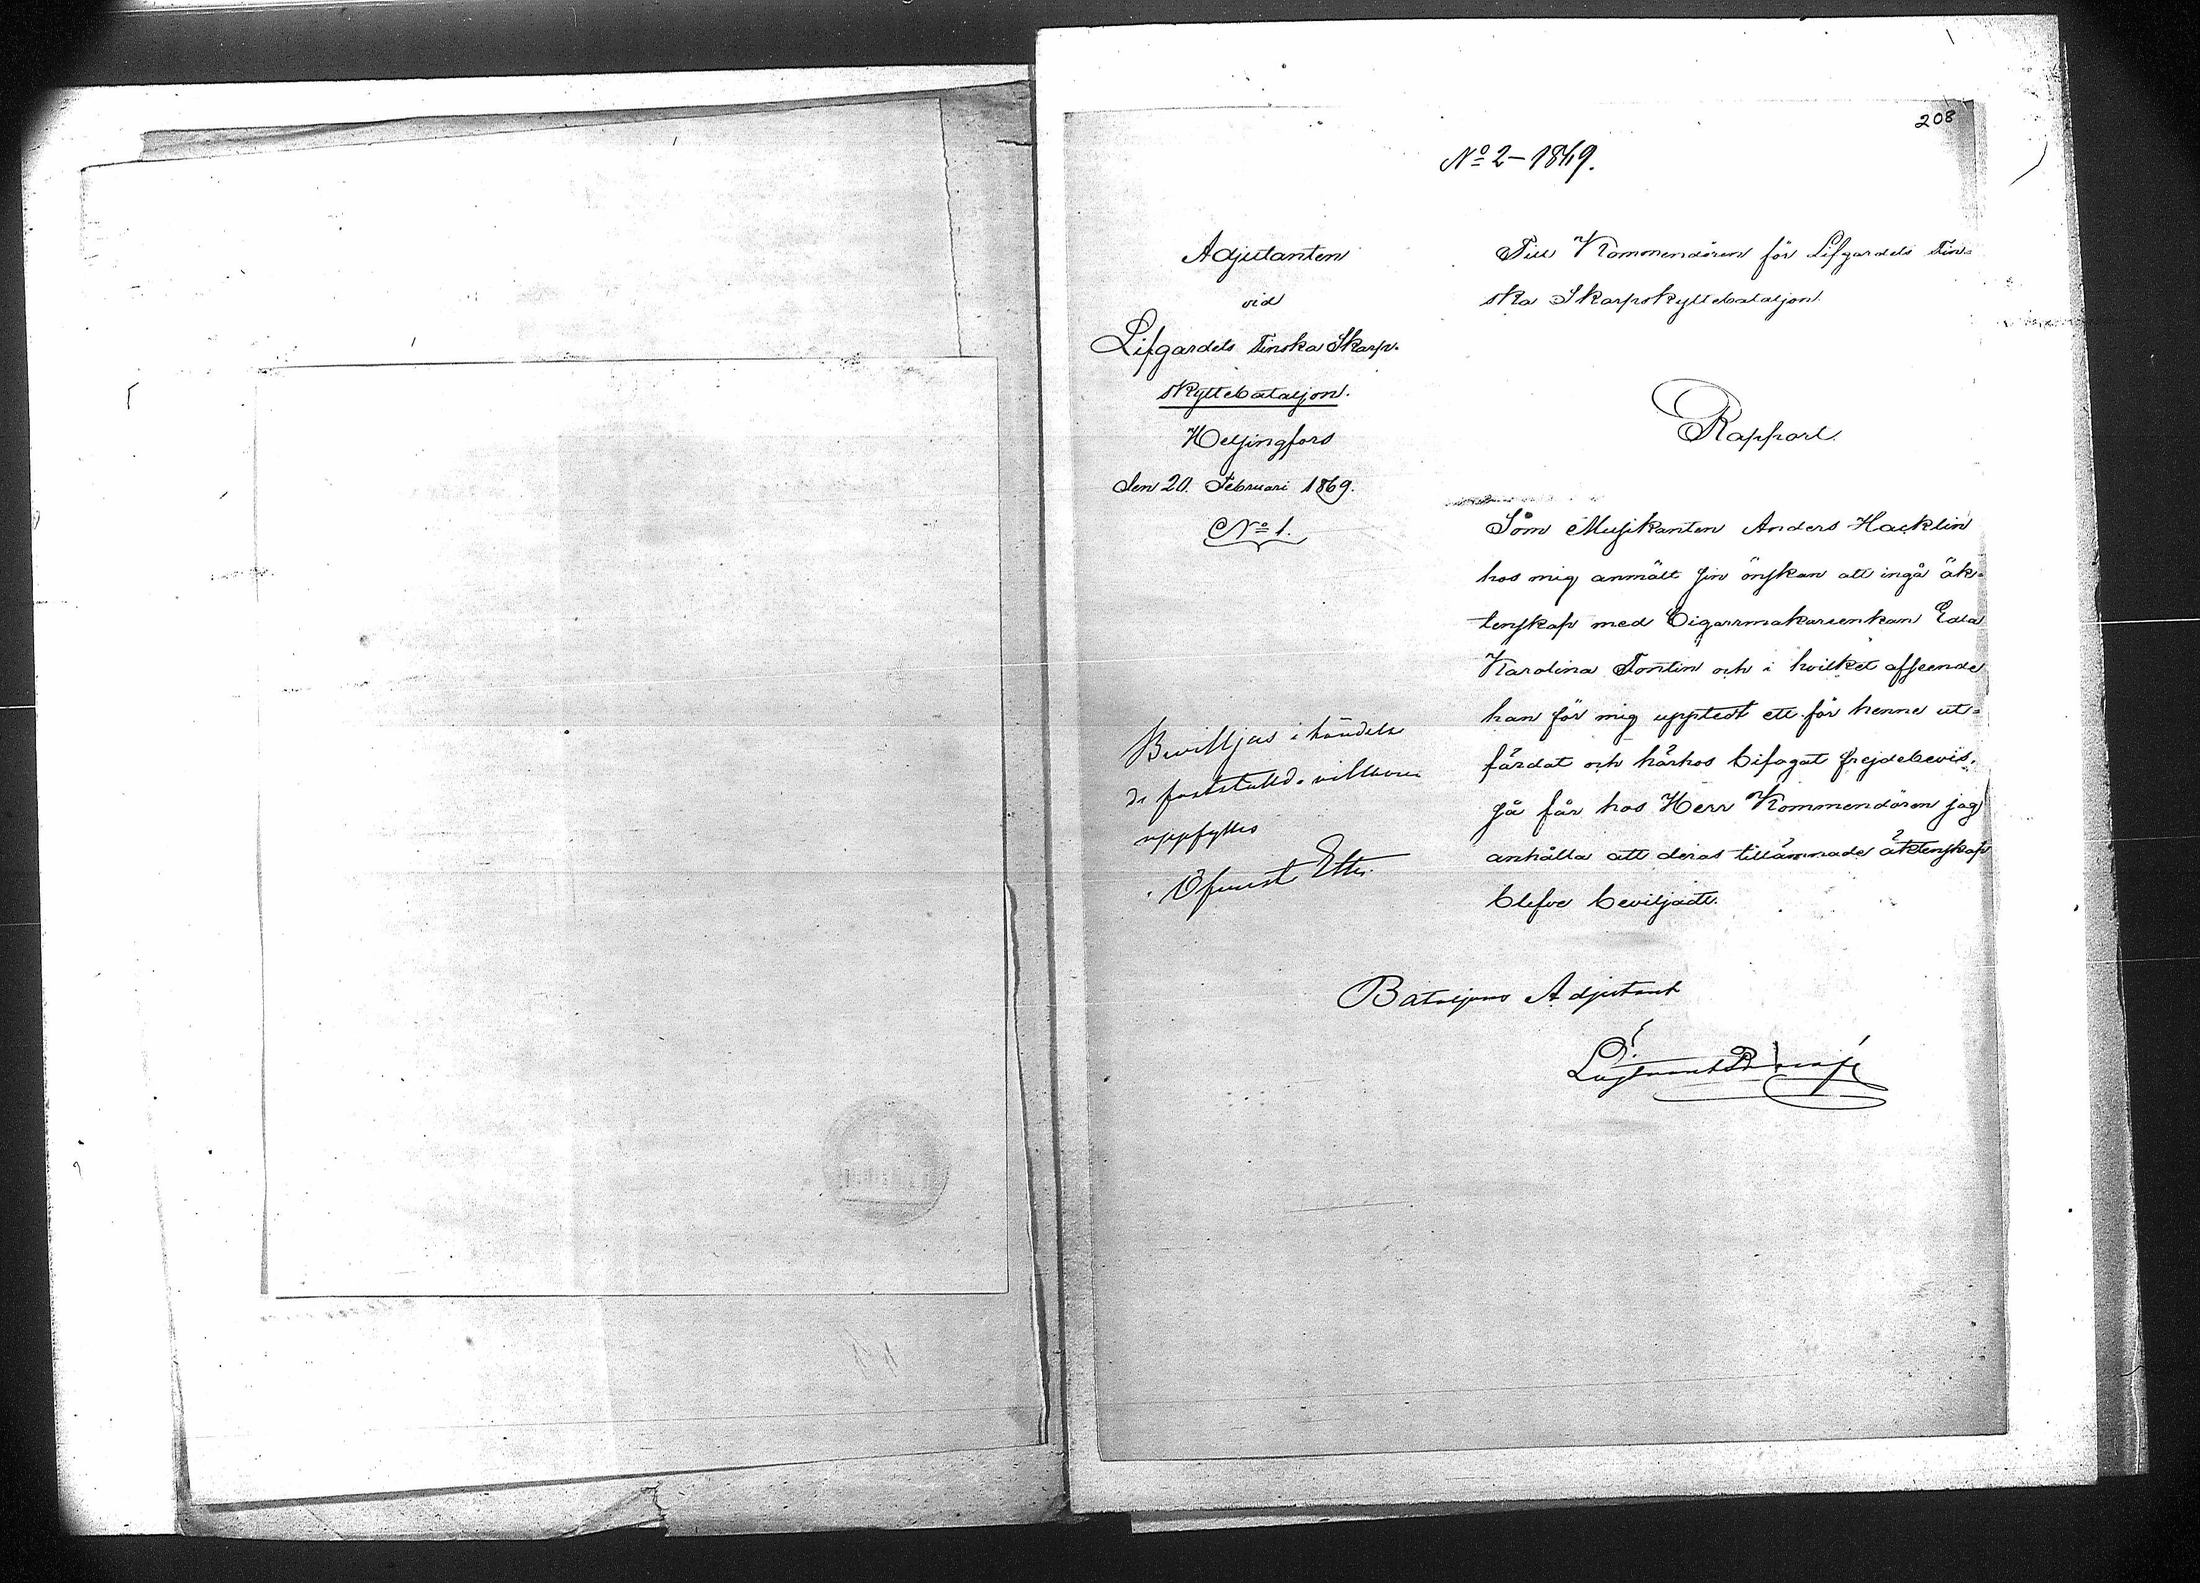 208
No 2 – 1869.
Adjutanten
vid
Lifgardets Finska Skarp-
skyttebataljon.
Helsingfors
den 20. Februari 1869.
No 1.
Till Kommendören för Lifgardets Fin-
ska Skarpskyttebataljon.
Rapport.
Som Musikanten Anders Hacklin
hos mig anmält sin önskan att ingå äk-
tenskap med Cigarrmakareenkan Edla
Karolina Tontin och i hvilket afseende
han för mig upptedt ett för henne ut-
färdat och härhos bifogat frejdebevis,
så får hos Herr Kommendören jag
anhålla att deras tillämnade äktenskap
blefve beviljadt.
Beviljas i händelse
de faststälda vilkoren
uppfyllts
Öfverst Etter
Bataljons Adjutant
Löjtnant